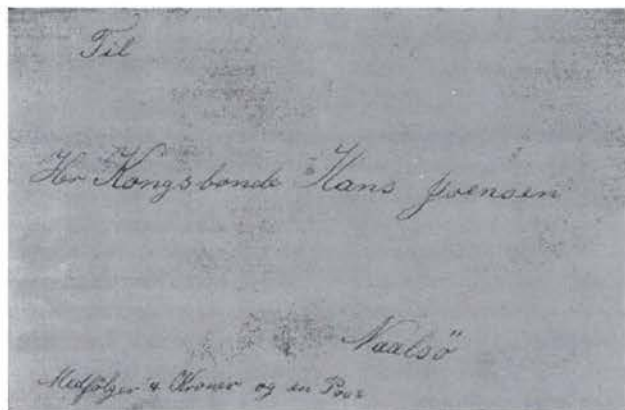 Til
Hr Kongsbonde Hans Joensen
Naalsö
Medfølger 4 Kroner og en Pose